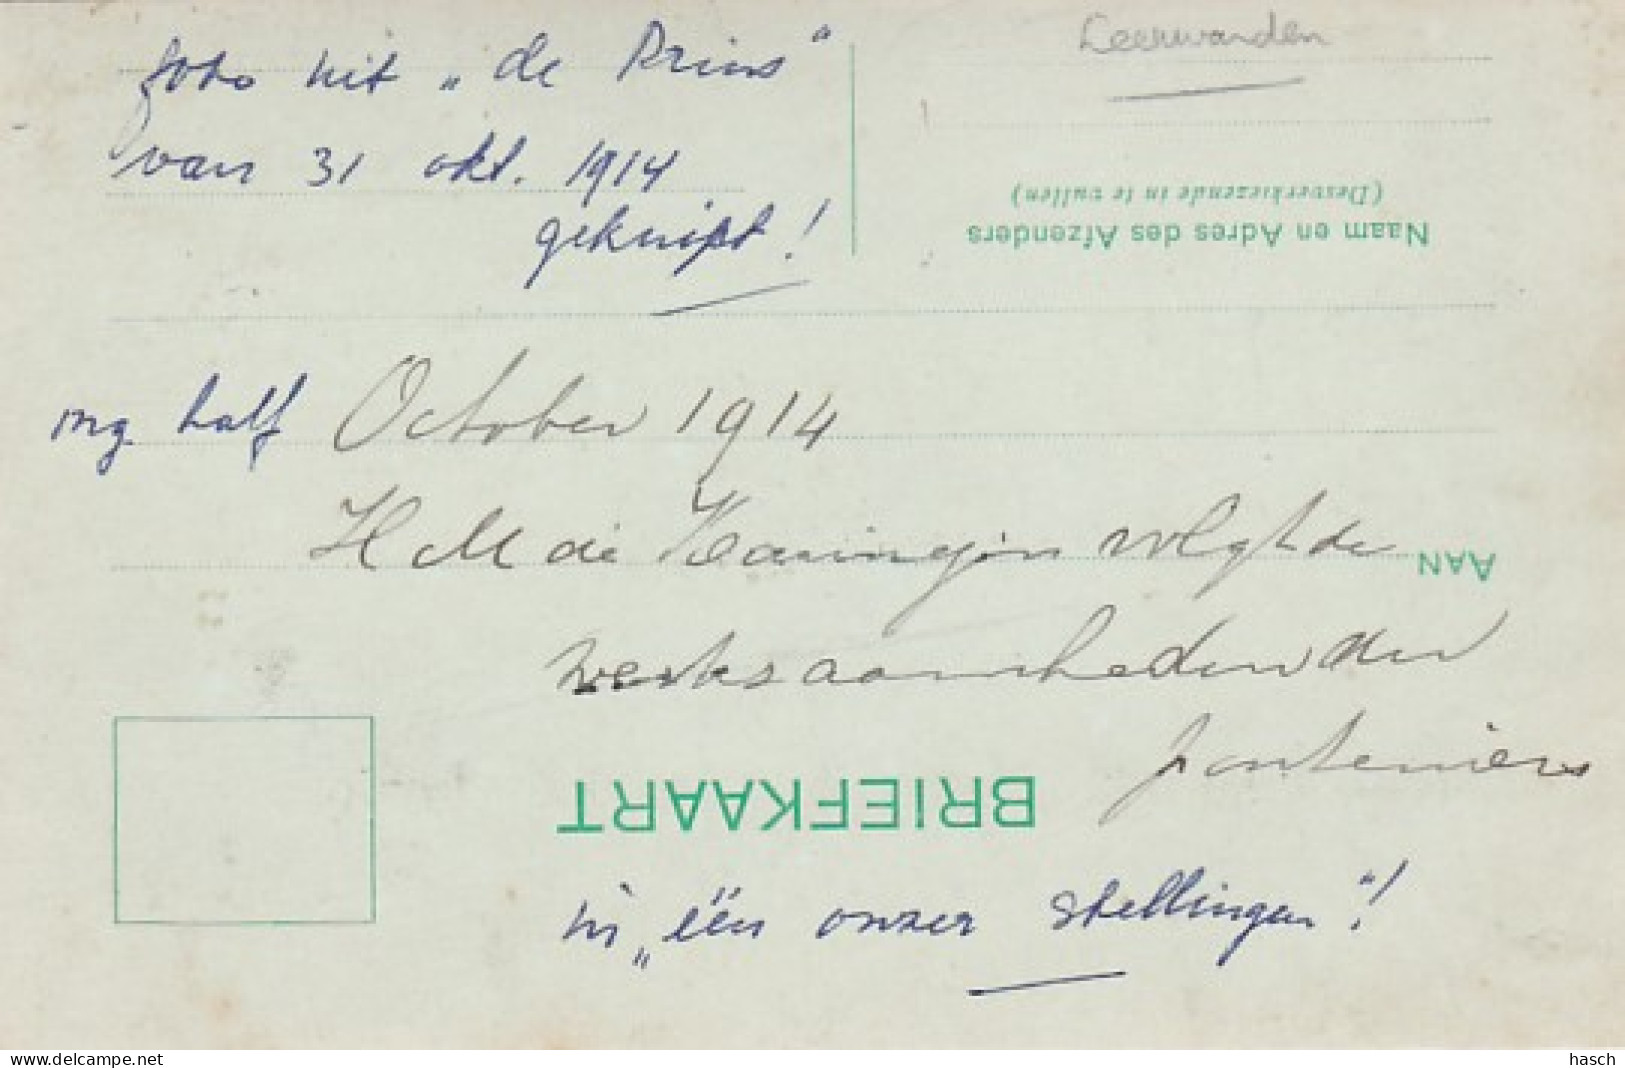 Leeuwarden
foto uit „de Prins"
van 31 okt. 1914
geknipt!
(Desverkiezende in te vullen)
Naam en Adres des Afzenders
half October 1914
H M de Koningin volgt de
AAN
werkzaamheden der
ponteniers
BRIEFKAART
in „één onzer stellingen"!
www.delcampe.net
hasch